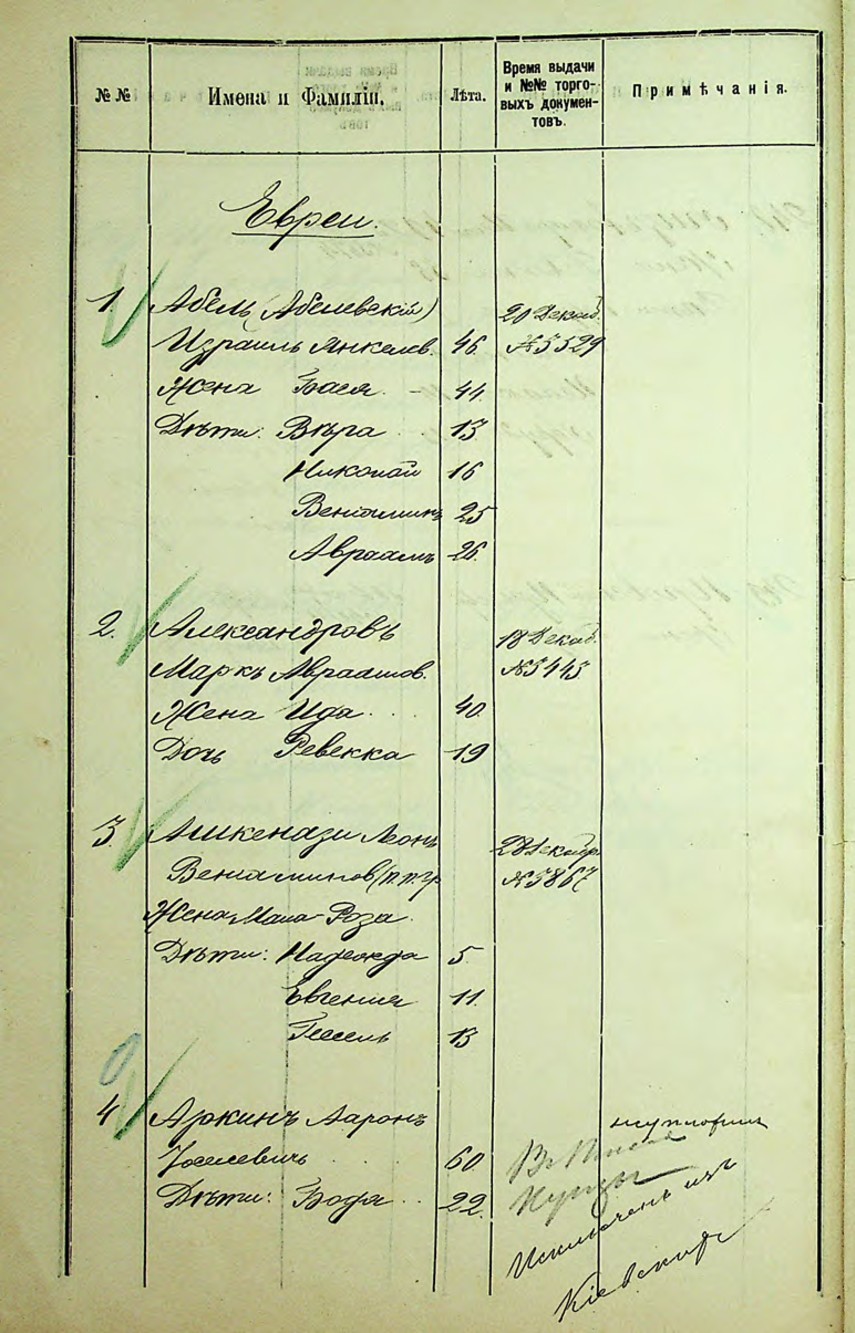 №№ Имена и Фамиліи. Лѣта. Время выдачи и №№ торговыхъ документовъ. Примѣчанія.
Евреи.
1. Абель (Абелевскій) 20 Декаб.
Израиль Янкелев. 46. №5529
Жена Бася. 44.
Дѣти: Вѣра 13
Николай 16
Веніаминъ 25
Авраамъ 26.
2. Александровъ 18 Декаб.
Маркъ Авраамов. №5443
Жена Ида 40.
Дочь Ревекка 19
3. Ашкенази Леонъ 28 Декабр.
Веніаминов (п.п.гр №5867
Жена Роза.
Дѣти: Надежда 5.
Евгенія 11.
13
4 Аркинъ Ааронъ
Іоселевичъ 60
Дѣти: 22.
Исключенъ изъ